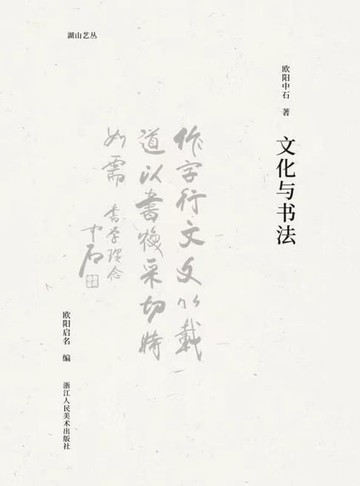 湖山艺丛
欧阳中石 著
文化与书法
作字行文文以載
道以書焕采切時
如需
書学理念
中石
欧阳启名 编
浙江人民美术出版社